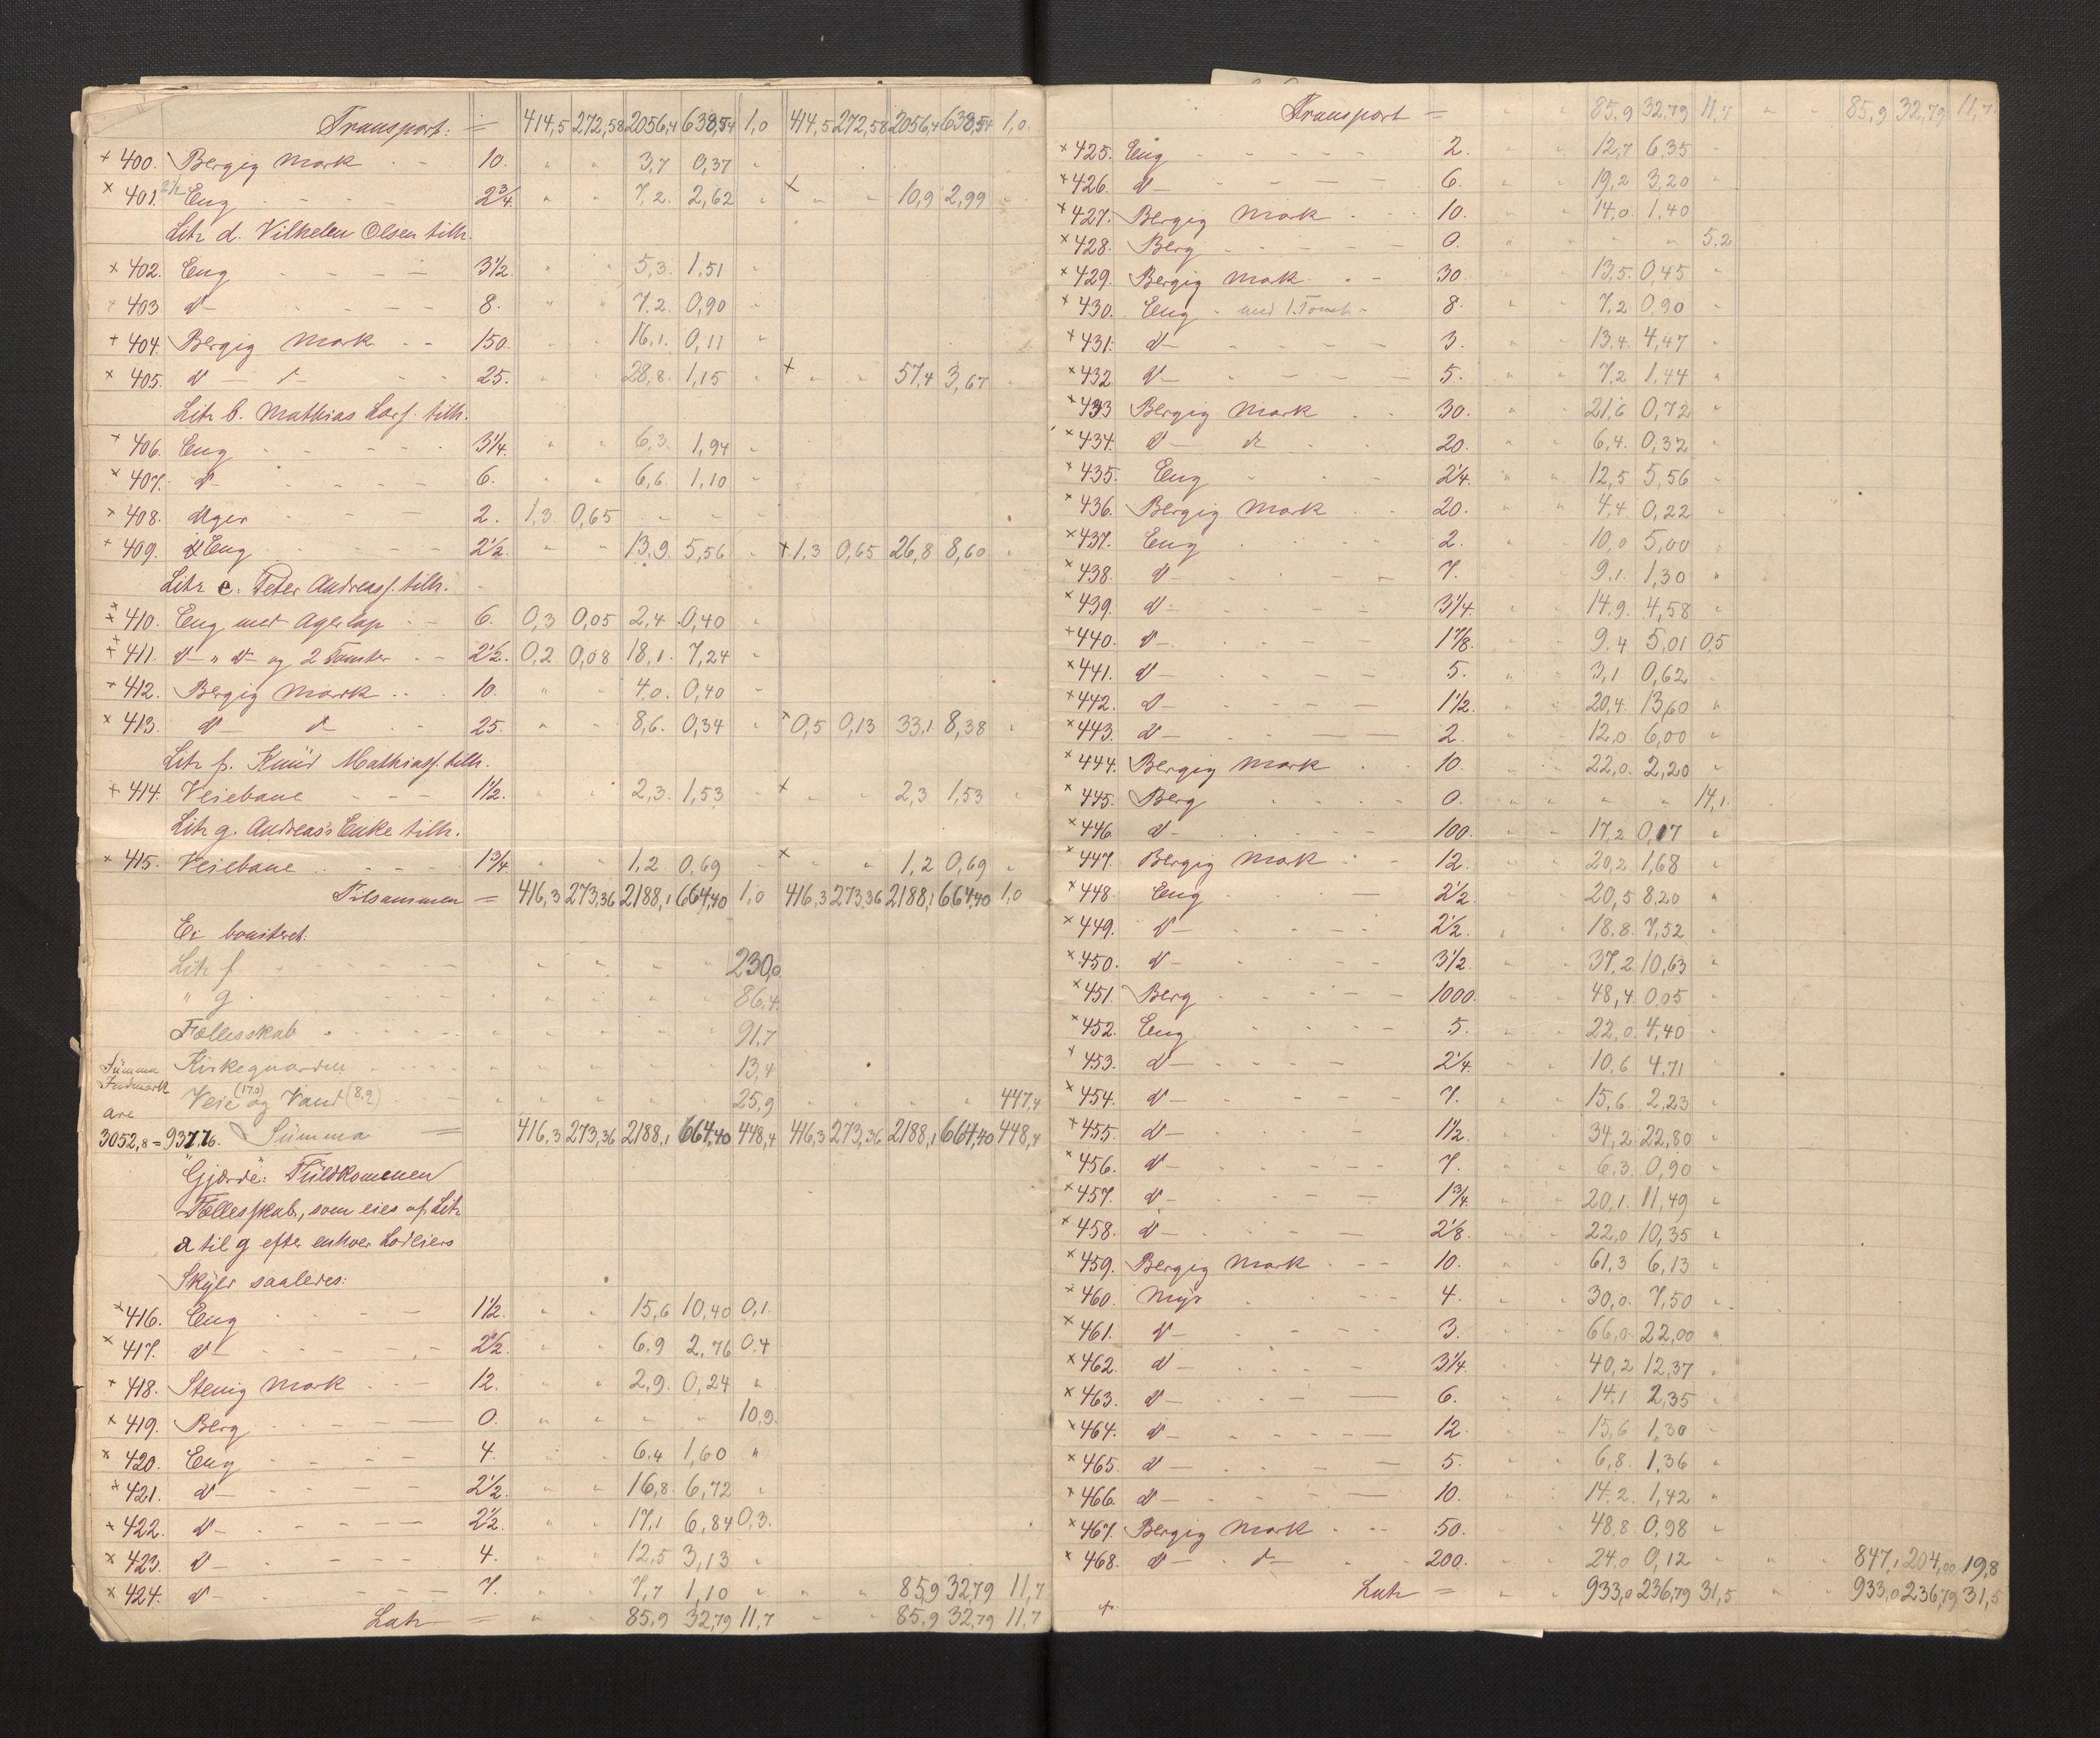 Transport: = 414,5 272,58 2056,4 638,54 1,0 414,5 272,58 2056,4 638,54 1,0.
+ 400. Bergig Mark - - 10. " " 3,7 0,37 "
× 401. 2½ Eng - - - - 2¾. " " 7,2. 2,62 " × " " 10,9 2,99 "
Litr d. Vilhelm Olsen tilh.
× 402. Eng - - - - 3½. " " 5,3. 1,51 "
+ 403 d— - - - - 8. " " 7.2. 0,90 "
+ 404. Bergig Mark - - 150. " " 16,1. 0,11 "
× 405. d— d— - - 25. " " 28,8. 1,15 " × " " 57,4 3,67 "
Litr b. Mathias Larf. tilh.
× 406. Eng - - - - 3¼. " " 6,3. 1,94 "
× 407. d— - - - - 6. " " 6,6. 1,10 "
× 408. Ager - - - 2. 1,3. 0,65 - - -
+ 409. Eng - - - - 2½. - - 13,9. 5,56 " ×.1,3 0,65 26,8 8,60 "
Litr e. Peter Andreasf. tilh.
× 410. Eng med Agerlap - - 6. 0,3 0,05 2,4 0,40 "
× 411. d— " d— og 2 Tomter - - 2½. 0,2 0,08 18,1. 7,24 "
+ 412. Bergig Mark - - 10. " " 4,0. 0,40 -
× 413. d— d— - 25. " " 8,6. 0,34 " × 0,5 0,13 33,1 8,38 "
Litr f. Knud Mathiasf. tilh.
+ 414. Veiebane - - - 1½. " " 2,3. 1,53 " × " " 2,3 1,53 "
Litr g. Andreas's Enke tilh.
× 415. Veiebane - - - - 1¾. " " 1,2 0,69 - × " " 1,2 0,69 "
Tilsammen = 416,3 273,36 2188,1 664,40 1,0 416,3 273,36 2188,1 664,40 1,0
Ei boniteret.
Litr f. - - - - " " " " 230,0
" g. - - - - " " " " 86,4
Fællesskab - - - - " " " " 91,7
Summa Kirkegaarden - - - 13,4
Indmark Veie (17,0) og Vand (8,9) - - - 25,9 " " " " 447,4
are
3052,8 = 937,76. Summa = 416,3 273,36 2188,1 664,40 448,4 416,3 273,36 2188,1 664,40 448,4
"Gjærde": Fuldkommen
Fællesskab, som eies af Litr
a til g efter enhver Lodeiers
Skyld saaledes:
× 416. Eng - - - - 1½. " " 15,6 10,40 0,1.
× 417. d— - - - - 2½. " " 6,9 2,76 0,4
+ 418. Stenig Mark - - 12. " " 2,9. 0,24 "
× 419. Berg - - - - 0. " " " " 10,9.
× 420. Eng - - - - 4. " " 6,4 1,60 "
+ 421. d— - - - - 2½. " " 16,8. 6,72 "
+ 422. d— - - - - 2½. " " 17,1 6,84 0,3.
× 423. d— - - - - 4. " " 12,5 3,13 "
× 424. d— - - - - 7. " " 7,7 1,10 " " " 85,9 32,79 11,7
Latr = " " 85,9 32,79 11,7 " " 85,9 32,79 11,7
Transport = " " 85,9 32,79 11,7 " " 85,9 32,79 11,7.
× 425. Eng - - - - - 2. " " 12,7 6,35 "
× 426. d— - - - - 6. " " 19,2 3,20 "
× 427. Bergig Mark - - 10. " " 14,0. 1,40
× 428. Berg - - - - - 0. " " " " 5,2
× 429. Bergig Mark - - 30. " " 13,5. 0,45 "
× 430. Eng - med 1. Tomt - 8. " " 7,2 0,90 "
× 431. d— - - - - 3. " " 13,4. 4,47 "
× 432. d— - - - - 5. " " 7,2 1,44 "
× 433 Bergig Mark - - 30. " " 21,6 0,72 "
× 434. d— d— - - 20. " " 6,4. 0,32 "
× 435. Eng - - - 2¼. " " 12,5 5,56 "
× 436. Bergig Mark - - 20. " " 4,4 0,22 "
× 437. Eng - - - - 2. " " 10,0 5,00 "
× 438. d— - - - - 7. " " 9,1. 1,30 "
× 439. d— - - - - 3¼. " " 14,9. 4,58 "
+ 440. d— - - - - 1⅞. " " 9,4 5,01 0,5
× 441. d— - - - - 5. " " 3,1 0,62 "
× 442. d— - - - - 1½. " " 20,4. 13,60 "
× 443. d— - - - - 2. " " 12,0. 6,00 "
× 444. Bergig Mark - - 10. " " 22,0. 2,20 "
× 445. Berg - - - - 0. " " " " 14,1.
× 446 d— - - - - 100. " " 17,2 0,17 "
× 447. Bergig Mark - - 12. " " 20,2 1,68 "
× 448. Eng - - - 2½. " " 20,5 8,20 "
× 449. d— - - - - 2½. " " 18,8. 7,52 "
× 450. d— - - - - 3½. " " 37,2. 10,63 "
× 451. Berg - - - - 1000. " " 48,4 0,05 "
× 452. Eng - - - - 5. " " 22,0. 4,40 "
× 453. d— - - - - 2¼. " " 10,6 4,71 "
× 454. d— - - - - 7. " " 15,6. 2,23 "
× 455. d— - - - - 1½. " " 34,2. 22,80 "
× 456. d— - - - - 7. " " 6,3. 0,90 "
× 457. d— - - - - 1¾. " " 20,1. 11,49 "
× 458. d— - - - - 2⅛. " " 22,0 10,35 "
× 459. Bergig Mark - - - 10. " " 61,3 6,13 "
× 460. Myr - - - - 4. " " 30,0. 7,50 "
× 461. d— - - - - 3. " " 66,0. 22,00 "
× 462. d— - - - - 3¼. " " 40,2 12,37 "
× 463. d— - - - - 6. " " 14,1 2,35 "
× 464. d— - - - - 12. " " 15,6 1,30 "
× 465. d— - - - - 5. " " 6,8. 1,36 "
× 466. d— - - - - 10. " " 14,2. 1,42 "
× 467. Bergig Mark - - - 50. " " 48,8. 0,98 "
× 468. d— d— - - 200. " " 24,0 0,12 " " " 847,1 204,00 19,8
Latr = " " 933,0 236,79 31,5 " " 933,0 236,79 31,5